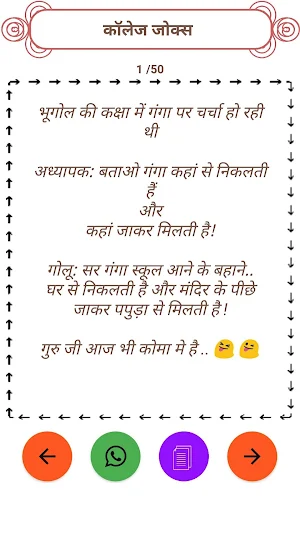 कॉलेज जोक्स
1 /50
भूगोल की कक्षा में गंगा पर चर्चा हो रही
थी
अध्यापक: बताओ गंगा कहां से निकलती
हैं
और
कहां जाकर मिलती है!
गोलू: सर गंगा स्कूल आने के बहाने..
घर से निकलती है और मंदिर के पीछे
जाकर पपुड़ा से मिलती है !
गुरु जी आज भी कोमा मे है .. 😜 😜